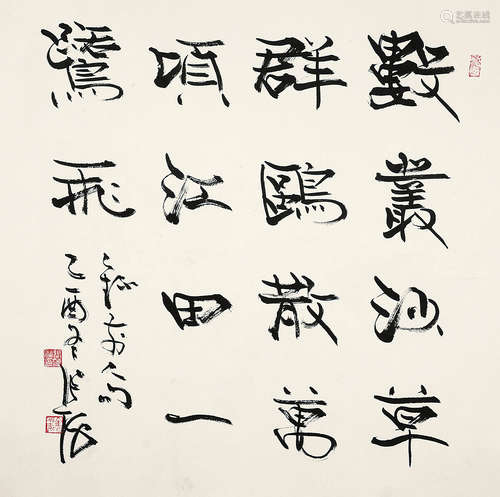 數叢沙草
群鷗散萬
頃江田一
鷺飛
乙酉冬